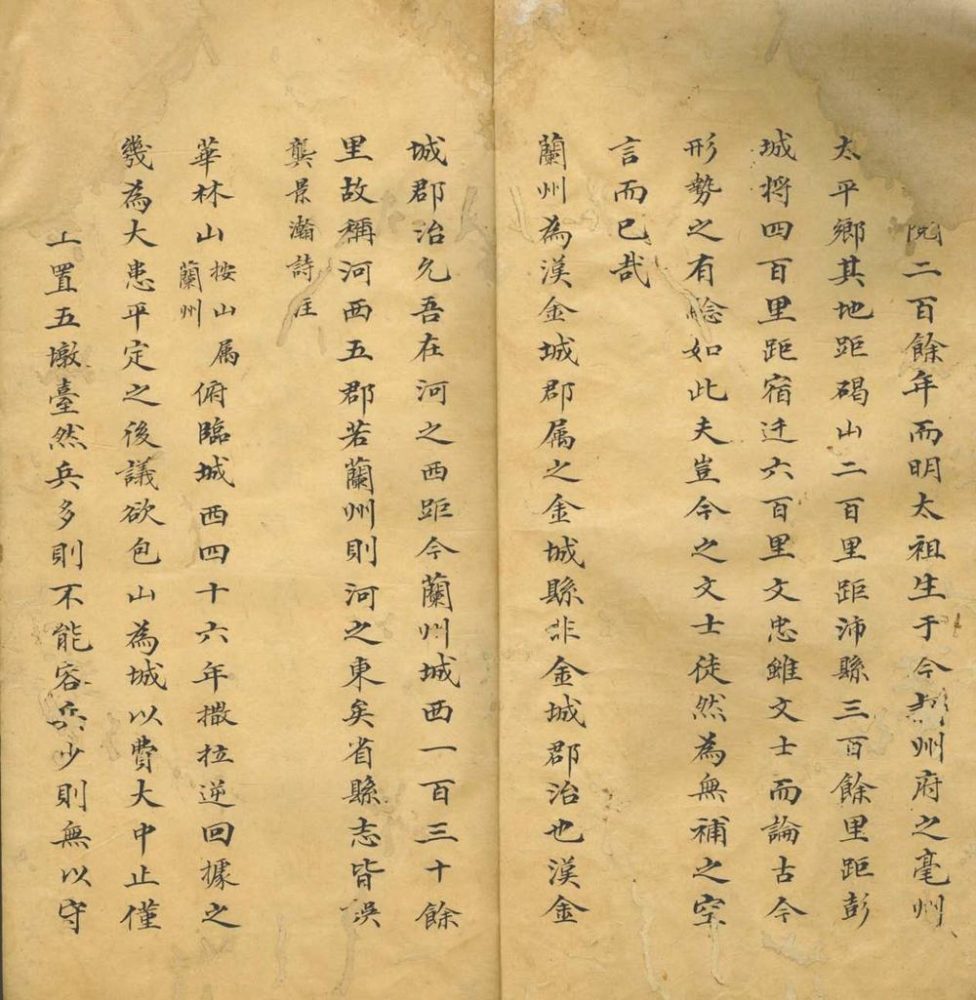 二百餘年而明太祖生于今州府之亳州
太平鄉其地距碭山二百里距沛縣三百餘里距彭
城將四百里距宿迁六百里文忠雖文士而論古今
形勢之有如此夫豈今之文士徒然為無補之空
言而已哉
蘭州為漢金城郡属之金城縣非金城郡治也漢金
城郡治允吾在河之西距今蘭州城西一百三十餘
里故稱河西五郡若蘭州則河之東矣省縣志皆誤
龔景瀚詩注
華林山按山属蘭州俯臨城西四十六年撒拉逆回據之
幾為大患平定之後議欲包山為城以費大中止僅
上置五墩臺然兵多則不能容兵少則無以守